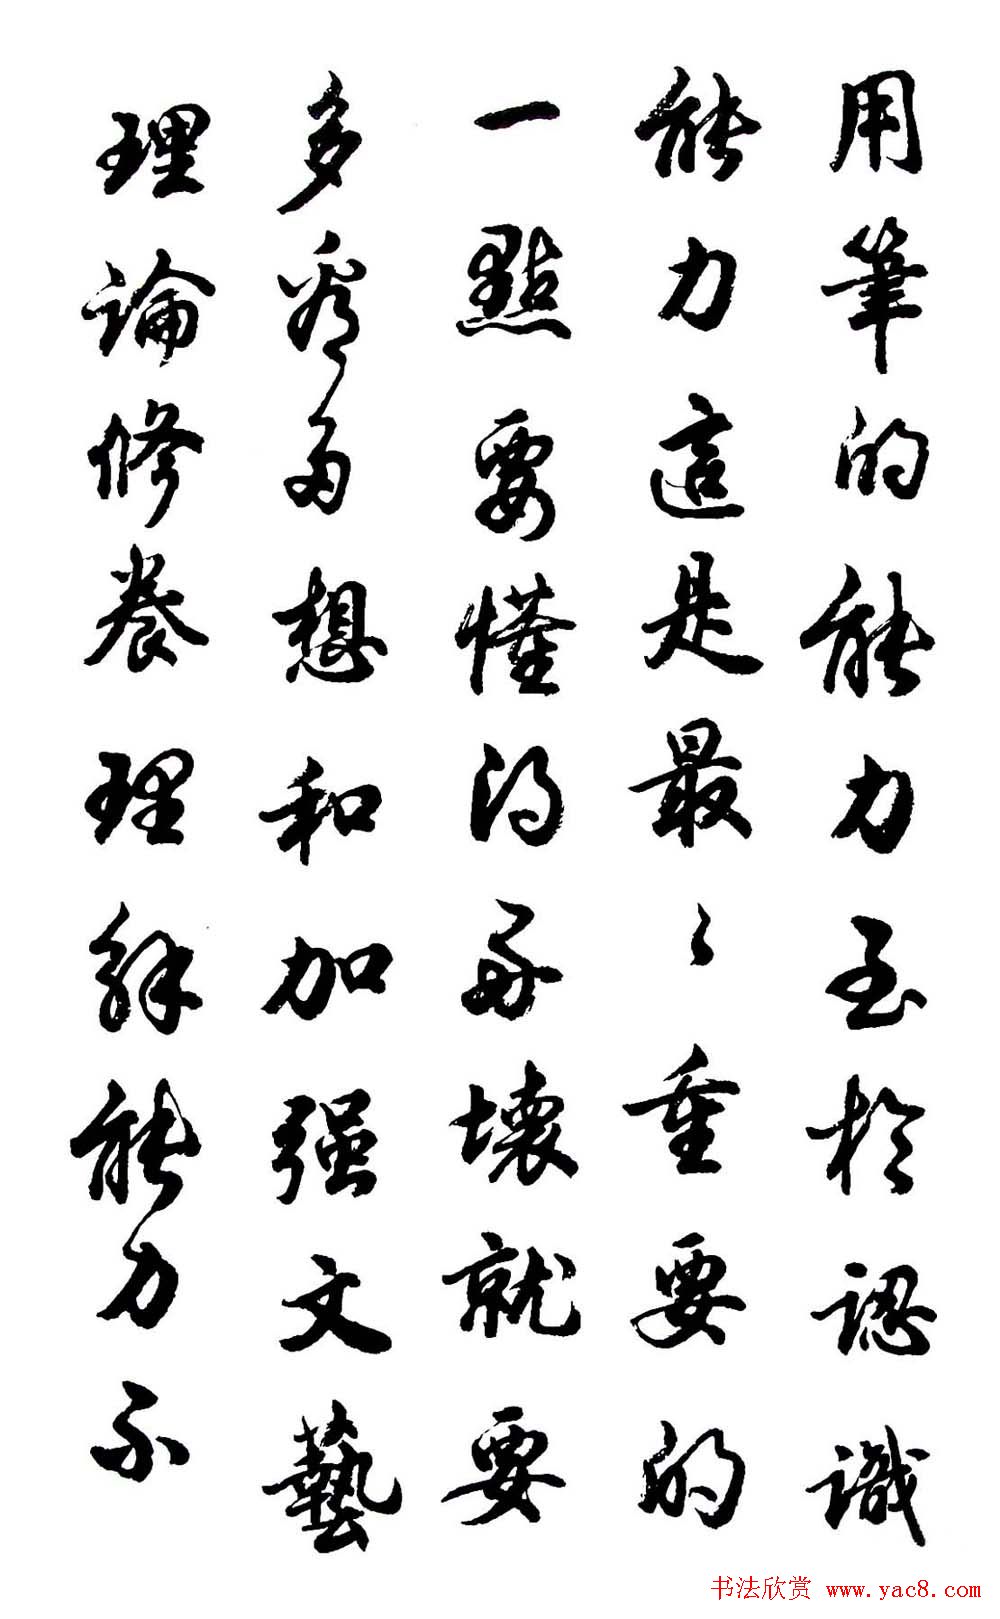 用筆的能力至於認識
能力這是最々重要的
一點要懂得好壞就要
多看多想和加强文藝
理論修養理解能力不
书法欣赏 www.yac8.com